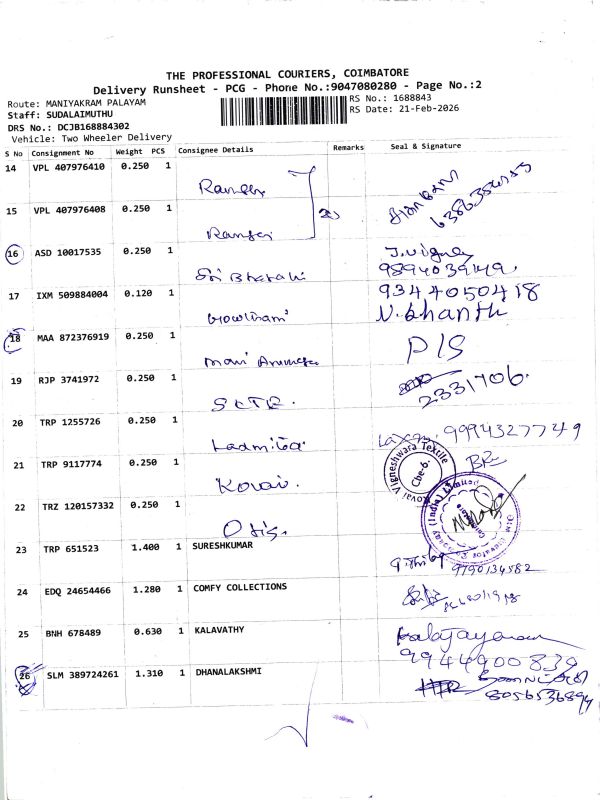 THE PROFESSIONAL COURIERS, COIMBATORE
Delivery Runsheet - PCG - Phone No.:9047080280 - Page No.:2
Route: MANIYAKRAM PALAYAM
RS No.: 1688843
Staff: SUDALAIMUTHU
RS Date: 21-Feb-2026
DRS No.: DCJB168884302
Vehicle: Two Wheeler Delivery
S No Consignment No Weight PCS Consignee Details Remarks Seal & Signature
14 VPL 407976410 0.250 1
15 VPL 407976408 0.250 1
16 ASD 10017535 0.250 1 Sri Bharathi J. Vigney
9894039149.
17 IXM 509884004 0.120 1 Gowtham 9344050418
N. Khanth
18 MAA 872376919 0.250 1 P/S
19 RJP 3741972 0.250 1 2331706.
20 TRP 1255726 0.250 1 9994327749
21 TRP 9117774 0.250 1 Kovai. Kovai Vigneshwara Textile
Cbe-6.
22 TRZ 120157332 0.250 1 Otis. (India) Limited
23 TRP 651523 1.400 1 SURESHKUMAR
9790134582
24 EDQ 24654466 1.280 1 COMFY COLLECTIONS
25 BNH 678489 0.630 1 KALAVATHY
9944900839
26 SLM 389724261 1.310 1 DHANALAKSHMI
8056536894